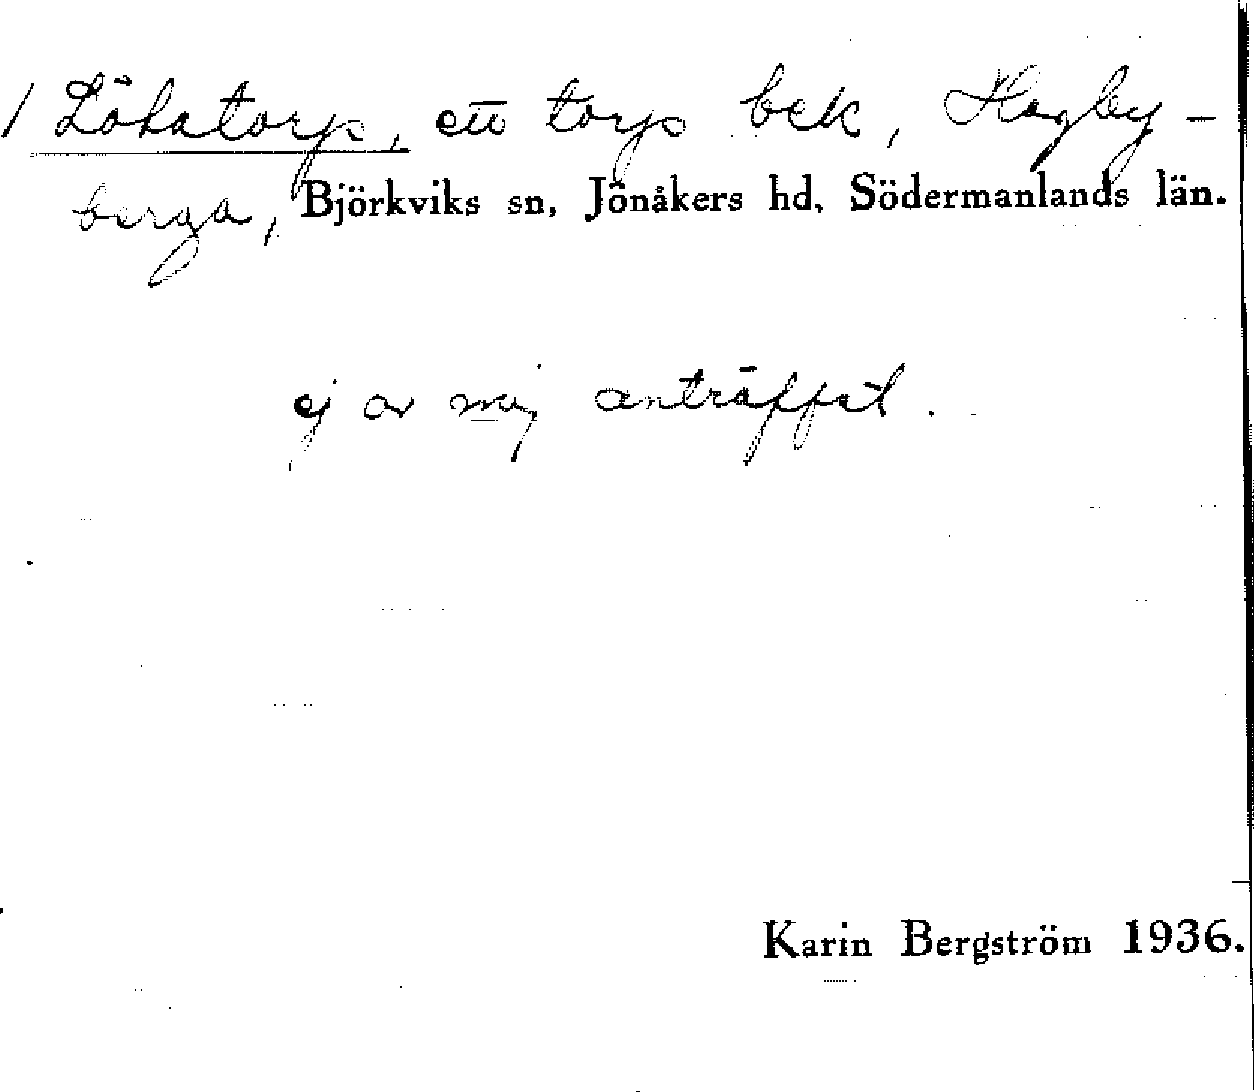 / Lökatorp, ett torp bek, Hagby-
berga, Björkviks sn, Jönåkers hd, Södermanlands län.
ej av mig anträffat.
Karin Bergström 1936.